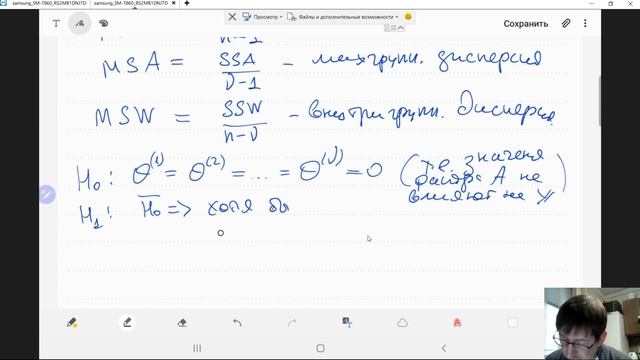 samsung_SM-T860_RS2M81DNJ7D samsung_SM-T860_RS2M81DNJ7D
Просмотр Файлы и дополнительные возможности
T Сохранить
n-1
MSA = SSA / ν-1 - межгрупп. дисперсия
MSW = SSW / n-ν - внутригрупп. дисперсия
H₀: θ⁽¹⁾ = θ⁽²⁾ = ... = θ⁽ᵛ⁾ = 0 (т.е. значения фактора A не влияют на Y)
H₁: H̅₀ => хотя бы